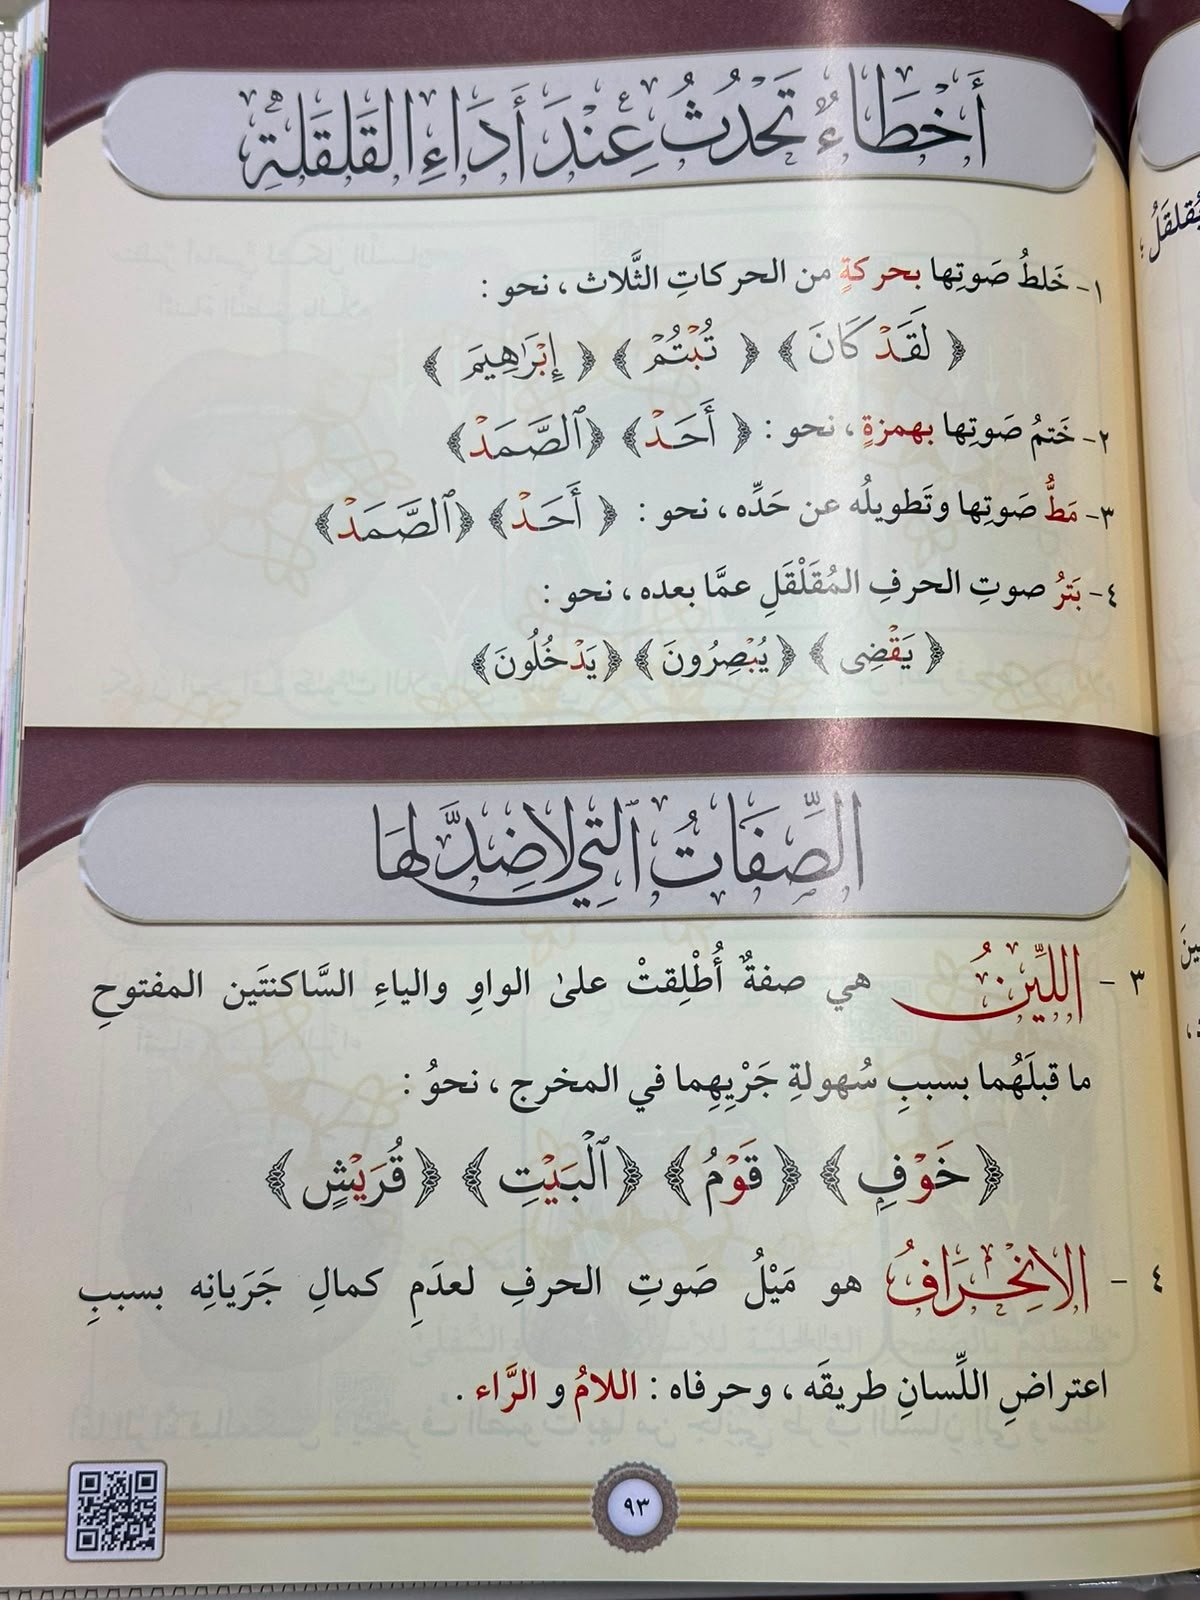 أَخْطَاءٌ تَحْدُثُ عِنْدَ أَدَاءِ القَلقَلَةِ
١- خَلطُ صَوتِها بحركةٍ من الحركاتِ الثَّلاث ، نحو :
﴿ لَقَدْ كَانَ ﴾ ﴿ تُبْتُمْ ﴾ ﴿ إِبْرَاهِيمَ ﴾
٢- خَتمُ صَوتِها بهمزةٍ ، نحو : ﴿ أَحَدْ ﴾ ﴿ ٱلصَّمَدْ ﴾
٣- مَطُّ صَوتِها وتَطويلُه عن حَدِّه ، نحو : ﴿ أَحَدْ ﴾ ﴿ ٱلصَّمَدْ ﴾
٤- بَترُ صوتِ الحرفِ المُقَلْقَلِ عمَّا بعده ، نحو :
﴿ يَقْضِى ﴾ ﴿ يُبْصِرُونَ ﴾ ﴿ يَدْخُلُونَ ﴾
الصِّفَاتُ التِي لَا ضِدَّ لَهَا
٣ - اللِّينُ هي صفةٌ أُطْلِقتْ علىٰ الواوِ والياءِ السَّاكنتَين المفتوحِ
ما قبلَهُما بسببِ سُهولةِ جَرْيِهِما في المخرج ، نحوُ :
﴿ خَوْفٍ ﴾ ﴿ قَوْمُ ﴾ ﴿ ٱلْبَيْتِ ﴾ ﴿ قُرَيْشٍ ﴾
٤ - الانْحِرَافُ هو مَيْلُ صَوتِ الحرفِ لعدَمِ كمالِ جَرَيانِه بسببِ
اعتراضِ اللِّسانِ طريقَه ، وحرفاه : اللامُ و الرَّاء .
٩٣